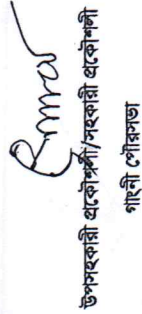 উপসহকারী প্রকৌশলী/সহকারী প্রকৌশলী
গাংনী পৌরসভা